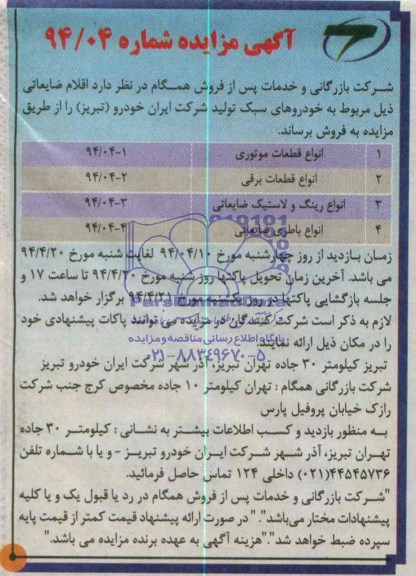 آگهی مزایده شماره ۹۴/۰۴
شرکت بازرگانی و خدمات پس از فروش همگام در نظر دارد اقلام ضایعاتی
ذیل مربوط به خودروهای سبک تولید شرکت ایران خودرو (تبریز) را از طریق
مزایده به فروش برساند.
۱ انواع قطعات موتوری ۹۴/۰۴-۱
۲ انواع قطعات برقی ۹۴/۰۴-۲
۳ انواع رینگ و لاستیک ضایعاتی ۹۴/۰۴-۳
۴ انواع باطری ضایعاتی ۹۴/۰۴-۴
زمان بازدید از روز چهارشنبه مورخ ۹۴/۰۴/۱۰ لغایت شنبه مورخ ۹۴/۴/۲۰
می باشد. آخرین زمان تحویل پاکتها روز شنبه مورخ ۹۴/۴/۲۰ تا ساعت ۱۷ و
جلسه بازگشایی پاکتها در روز یکشنبه مورخ ۹۴/۴/۲۱ برگزار خواهد شد.
لازم به ذکر است شرکت کنندگان در مزایده می توانند پاکات پیشنهادی خود
را در مکان ذیل ارائه نمایند.
پایگاه اطلاع رسانی مناقصه و مزایده
۰۲۱-۸۸۳۴۹۶۷۰-۵
تبریز کیلومتر ۳۰ جاده تهران تبریز، آذر شهر شرکت ایران خودرو تبریز
شرکت بازرگانی همگام : تهران کیلومتر ۱۰ جاده مخصوص کرج جنب شرکت
رازک خیابان پروفیل پارس
به منظور بازدید و کسب اطلاعات بیشتر به نشانی : کیلومتر ۳۰ جاده
تهران تبریز، آذر شهر شرکت ایران خودرو تبریز - و یا با شماره تلفن
۴۴۵۴۵۷۳۶(۰۲۱) داخلی ۱۲۴ تماس حاصل فرمائید.
"شرکت بازرگانی و خدمات پس از فروش همگام در رد یا قبول یک و یا کلیه
پیشنهادات مختار می‌باشد". " در صورت ارائه پیشنهاد قیمت کمتر از قیمت پایه
سپرده ضبط خواهد شد"."هزینه آگهی به عهده برنده مزایده می باشد."